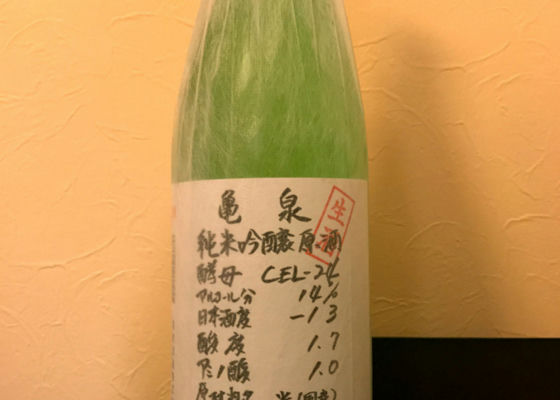 亀泉
生酒
純米吟醸原酒
酵母 CEL-24
アルコール分 14%
日本酒度 -13
酸度 1.7
アミノ酸 1.0
原材料名 米(国産)